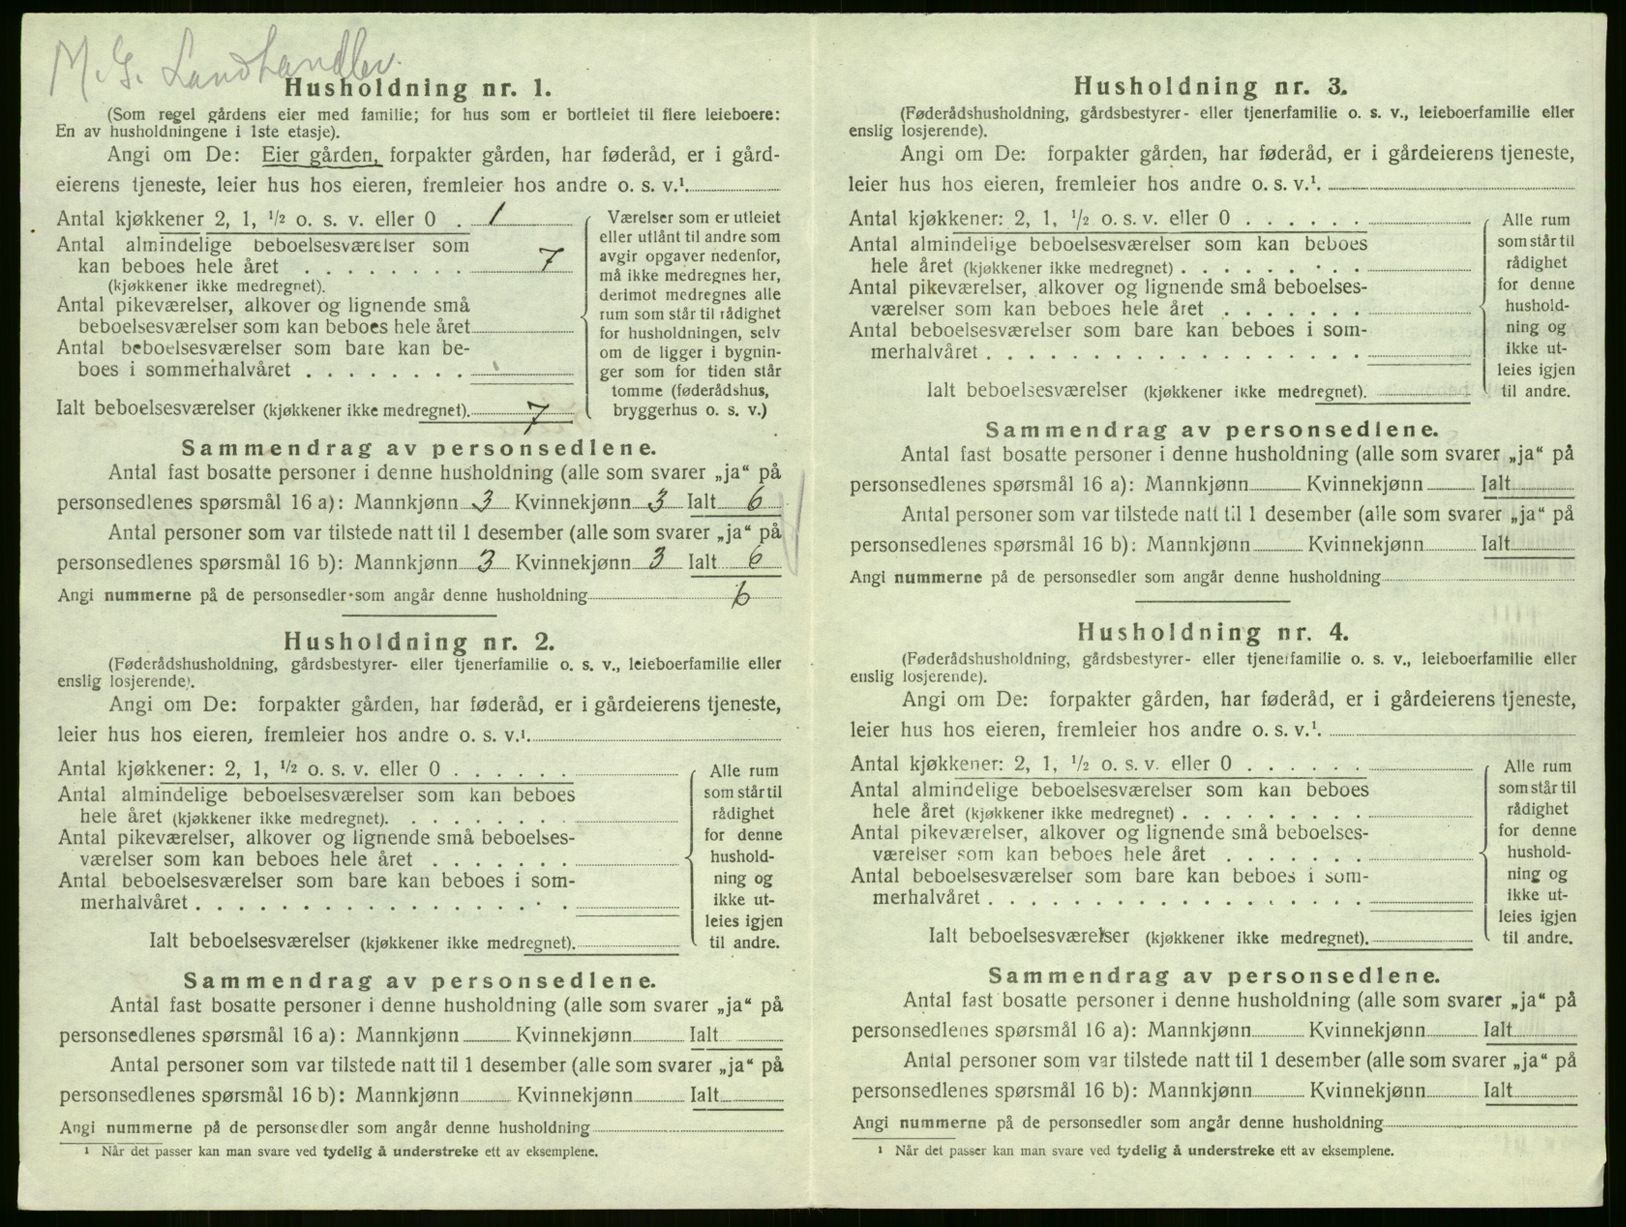 M. G. Landhandler.
Husholdning nr. 1.
(Som regel gårdens eier med familie; for hus som er bortleiet til flere leieboere:
En av husholdningene i 1ste etasje).
Angi om De: Eier gården, forpakter gården, har føderåd, er i gård-
eierens tjeneste, leier hus hos eieren, fremleier hos andre o. s. v.¹
Antal kjøkkener 2, 1, ½ o. s. v. eller 0 . 1
Antal almindelige beboelsesværelser som
kan beboes hele året . . . . . . . . 7
(kjøkkener ikke medregnet).
Antal pikeværelser, alkover og lignende små
beboelsesværelser som kan beboes hele året
Antal beboelsesværelser som bare kan be-
boes i sommerhalvåret . . . . . . . .
Ialt beboelsesværelser (kjøkkener ikke medregnet). 7
Værelser som er utleiet
eller utlånt til andre som
avgir opgaver nedenfor,
må ikke medregnes her,
derimot medregnes alle
rum som står til rådighet
for husholdningen, selv
om de ligger i bygnin-
ger som for tiden står
tomme (føderådshus,
bryggerhus o. s. v.)
Sammendrag av personsedlene.
Antal fast bosatte personer i denne husholdning (alle som svarer „ja“ på
personsedlenes spørsmål 16 a): Mannkjønn 3 Kvinnekjønn 3 Ialt 6
Antal personer som var tilstede natt til 1 desember (alle som svarer „ja“ på
personsedlenes spørsmål 16 b): Mannkjønn 3 Kvinnekjønn 3 Ialt 6
Angi nummerne på de personsedler som angår denne husholdning 6
Husholdning nr. 2.
(Føderådshusholdning, gårdsbestyrer- eller tjenerfamilie o. s. v., leieboerfamilie eller
enslig losjerende).
Angi om De: forpakter gården, har føderåd, er i gårdeierens tjeneste,
leier hus hos eieren, fremleier hos andre o. s. v.¹
Antal kjøkkener: 2, 1, ½ o. s. v. eller 0 . . . . . .
Antal almindelige beboelsesværelser som kan beboes
hele året (kjøkkener ikke medregnet). . . . . . . . .
Antal pikeværelser, alkover og lignende små beboelses-
værelser som kan beboes hele året . . . . . . .
Antal beboelsesværelser som bare kan beboes i som-
merhalvåret . . . . . . . . . . . . . . . . . .
Ialt beboelsesværelser (kjøkkener ikke medregnet).
Alle rum
som står til
rådighet
for denne
hushold-
ning og
ikke ut-
leies igjen
til andre.
Sammendrag av personsedlene.
Antal fast bosatte personer i denne husholdning (alle som svarer „ja“ på
personsedlenes spørsmål 16 a): Mannkjønn Kvinnekjønn Ialt
Antal personer som var tilstede natt til 1 desember (alle som svarer „ja“ på
personsedlenes spørsmål 16 b): Mannkjønn Kvinnekjønn Ialt
Angi nummerne på de personsedler som angår denne husholdning
¹ Når det passer kan man svare ved tydelig å understreke ett av eksemplene.
Husholdning nr. 3.
(Føderådshusholdning, gårdsbestyrer- eller tjenerfamilie o. s. v., leieboerfamilie eller
enslig losjerende).
Angi om De: forpakter gården, har føderåd, er i gårdeierens tjeneste,
leier hus hos eieren, fremleier hos andre o. s. v.¹
Antal kjøkkener: 2, 1, ½ o. s. v. eller 0 . . . . . .
Antal almindelige beboelsesværelser som kan beboes
hele året (kjøkkener ikke medregnet) . . . . . . . . .
Antal pikeværelser, alkover og lignende små beboelses-
værelser som kan beboes hele året . . . . . . .
Antal beboelsesværelser som bare kan beboes i som-
merhalvåret . . . . . . . . . . . . . . . . . .
Ialt beboelsesværelser (kjøkkener ikke medregnet).
Alle rum
som står til
rådighet
for denne
hushold-
ning og
ikke ut-
leies igjen
til andre.
Sammendrag av personsedlene.
Antal fast bosatte personer i denne husholdning (alle som svarer „ja“ på
personsedlenes spørsmål 16 a): Mannkjønn Kvinnekjønn Ialt
Antal personer som var tilstede natt til 1 desember (alle som svarer „ja“ på
personsedlenes spørsmål 16 b): Mannkjønn Kvinnekjønn Ialt
Angi nummerne på de personsedler som angår denne husholdning
Husholdning nr. 4.
(Føderådshusholdning, gårdsbestyrer- eller tjenerfamilie o. s. v., leieboerfamilie eller
enslig losjerende).
Angi om De: forpakter gården, har føderåd, er i gårdeierens tjeneste,
leier hus hos eieren, fremleier hos andre o. s. v.¹
Antal kjøkkener: 2, 1, ½ o. s. v. eller 0 . . . . . .
Antal almindelige beboelsesværelser som kan beboes
hele året (kjøkkener ikke medregnet) . . . . . . . . .
Antal pikeværelser, alkover og lignende små beboelses-
værelser som kan beboes hele året . . . . . . .
Antal beboelsesværelser som bare kan beboes i som-
merhalvåret . . . . . . . . . . . . . . . . . .
Ialt beboelsesværelser (kjøkkener ikke medregnet).
Alle rum
som står til
rådighet
for denne
hushold-
ning og
ikke ut-
leies igjen
til andre.
Sammendrag av personsedlene.
Antal fast bosatte personer i denne husholdning (alle som svarer „ja“ på
personsedlenes spørsmål 16 a): Mannkjønn Kvinnekjønn Ialt
Antal personer som var tilstede natt til 1 desember (alle som svarer „ja“ på
personsedlenes spørsmål 16 b): Mannkjønn Kvinnekjønn Ialt
Angi nummerne på de personsedler som angår denne husholdning
¹ Når det passer kan man svare ved tydelig å understreke ett av eksemplene.